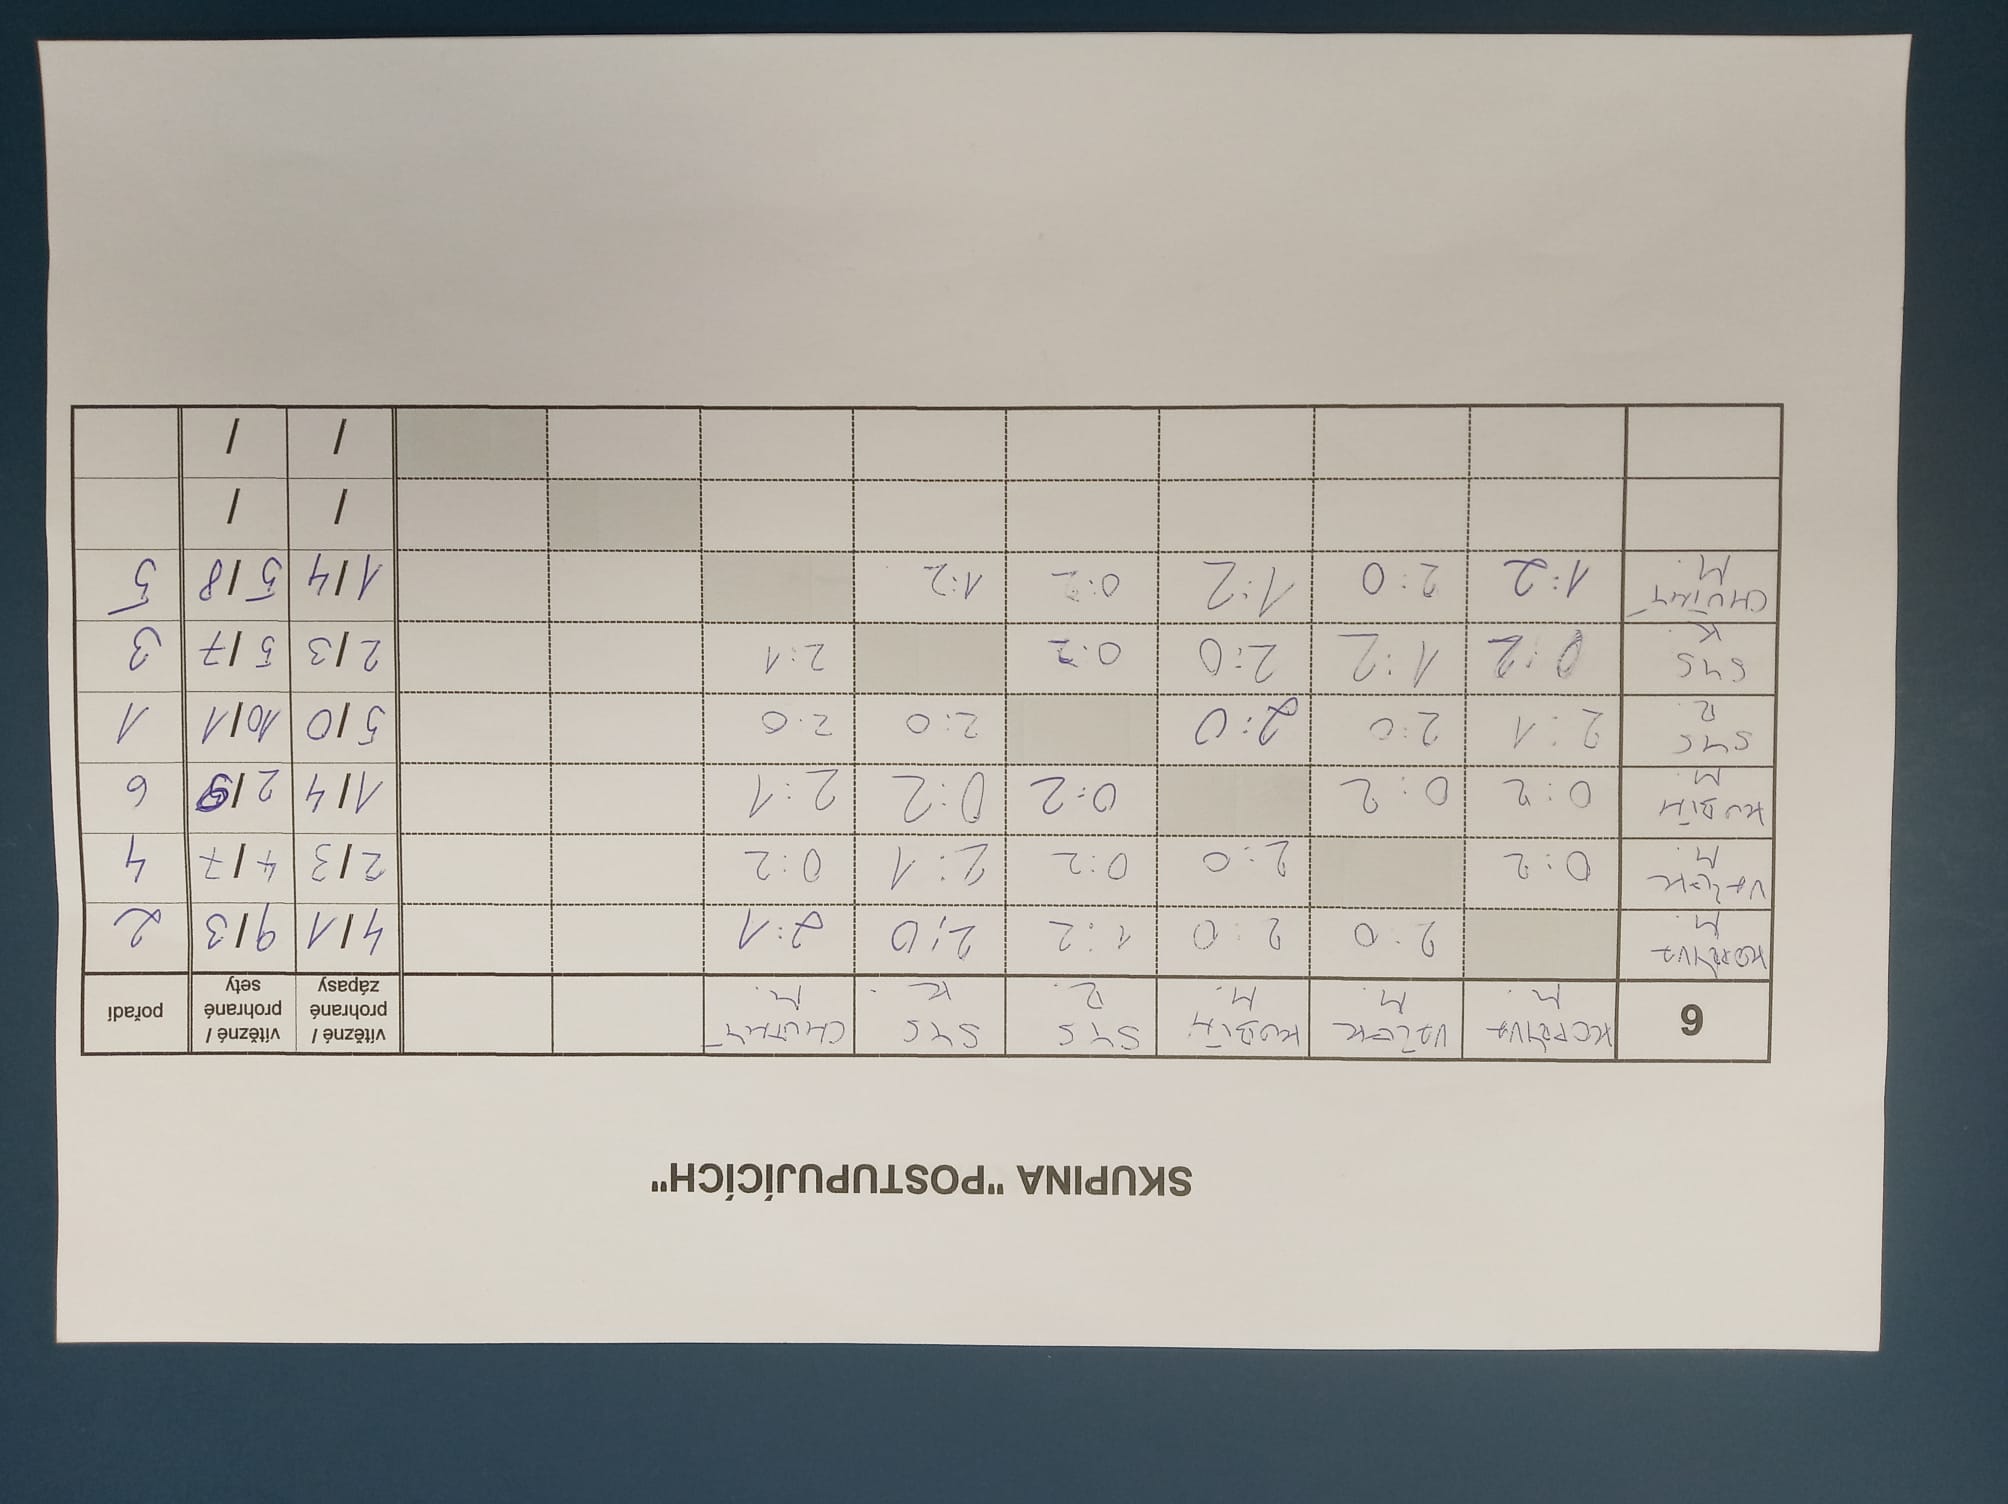 SKUPINA "POSTUPUJÍCÍCH"
6 KOPŘIVA M. VALČEK M. KUBÍN M. SYS R. SYS K. CHUTNÝ M. vítězné / prohrané zápasy vítězné / prohrané sety pořadí
KOPŘIVA M. 2:0 2:0 1:2 2:0 2:1 4/1 9/3 2
VALČEK M. 0:2 2:0 0:2 2:1 0:2 2/3 4/7 4
KUBÍN M. 0:2 0:2 0:2 0:2 2:1 1/4 2/9 6
SYS R. 2:1 2:0 2:0 2:0 2:0 5/0 10/1 1
SYS K. 0:2 1:2 2:0 0:2 2:1 2/3 5/7 3
CHUTNÝ M. 1:2 2:0 1:2 0:2 1:2 1/4 5/8 5
/ /
/ /